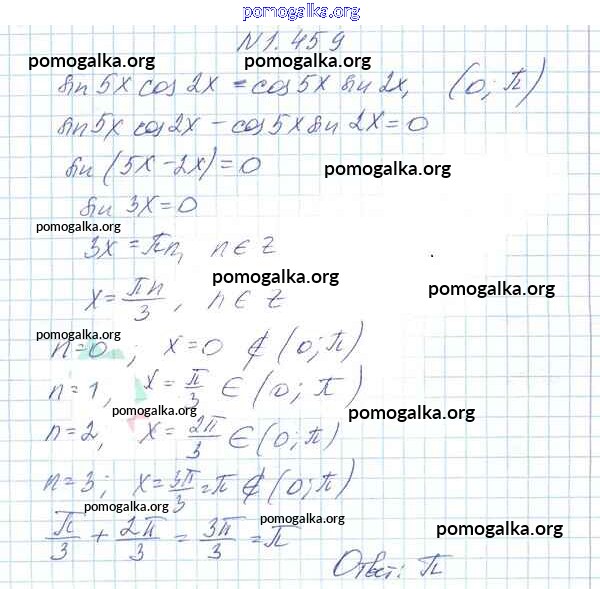 pomogalka.org
N1.459
pomogalka.org pomogalka.org
sin 5x cos 2x = cos 5x sin 2x, (0; π)
pomogalka.org pomogalka.org
sin 5x cos 2x - cos 5x sin 2x = 0
sin (5x - 2x) = 0
pomogalka.org
sin 3x = 0
pomogalka.org
3x = πn, n ∈ Z
pomogalka.org pomogalka.org
x = πn/3, n ∈ Z
pomogalka.org
n=0; x=0 ∉ (0; π)
n=1, x = π/3 ∈ (0; π)
pomogalka.org pomogalka.org
n=2, x = 2π/3 ∈ (0; π)
n=3; x = 3π/3 = π ∉ (0; π)
pomogalka.org pomogalka.org pomogalka.org
π/3 + 2π/3 = 3π/3 = π
Ответ: π